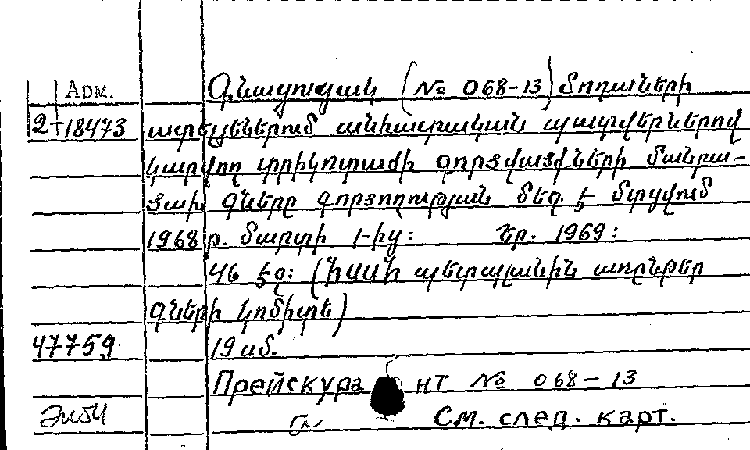 Арм. Գնացուցակ (№ 068-13) մոդաների
2-18473 ատելյեներում անհատական պատվերներով
կարվող տրիկոտաժի գործվածքների մանրա-
ծախ գները գործողության մեջ է մտցվում
1968 թ. մարտի 1-ից: Եր. 1969:
46 էջ: (ՀՍՍՀ պետպլանին առընթեր
գների կոմիտե)
47759 19 սմ.
Прейскурант № 068-13
См. след. карт.